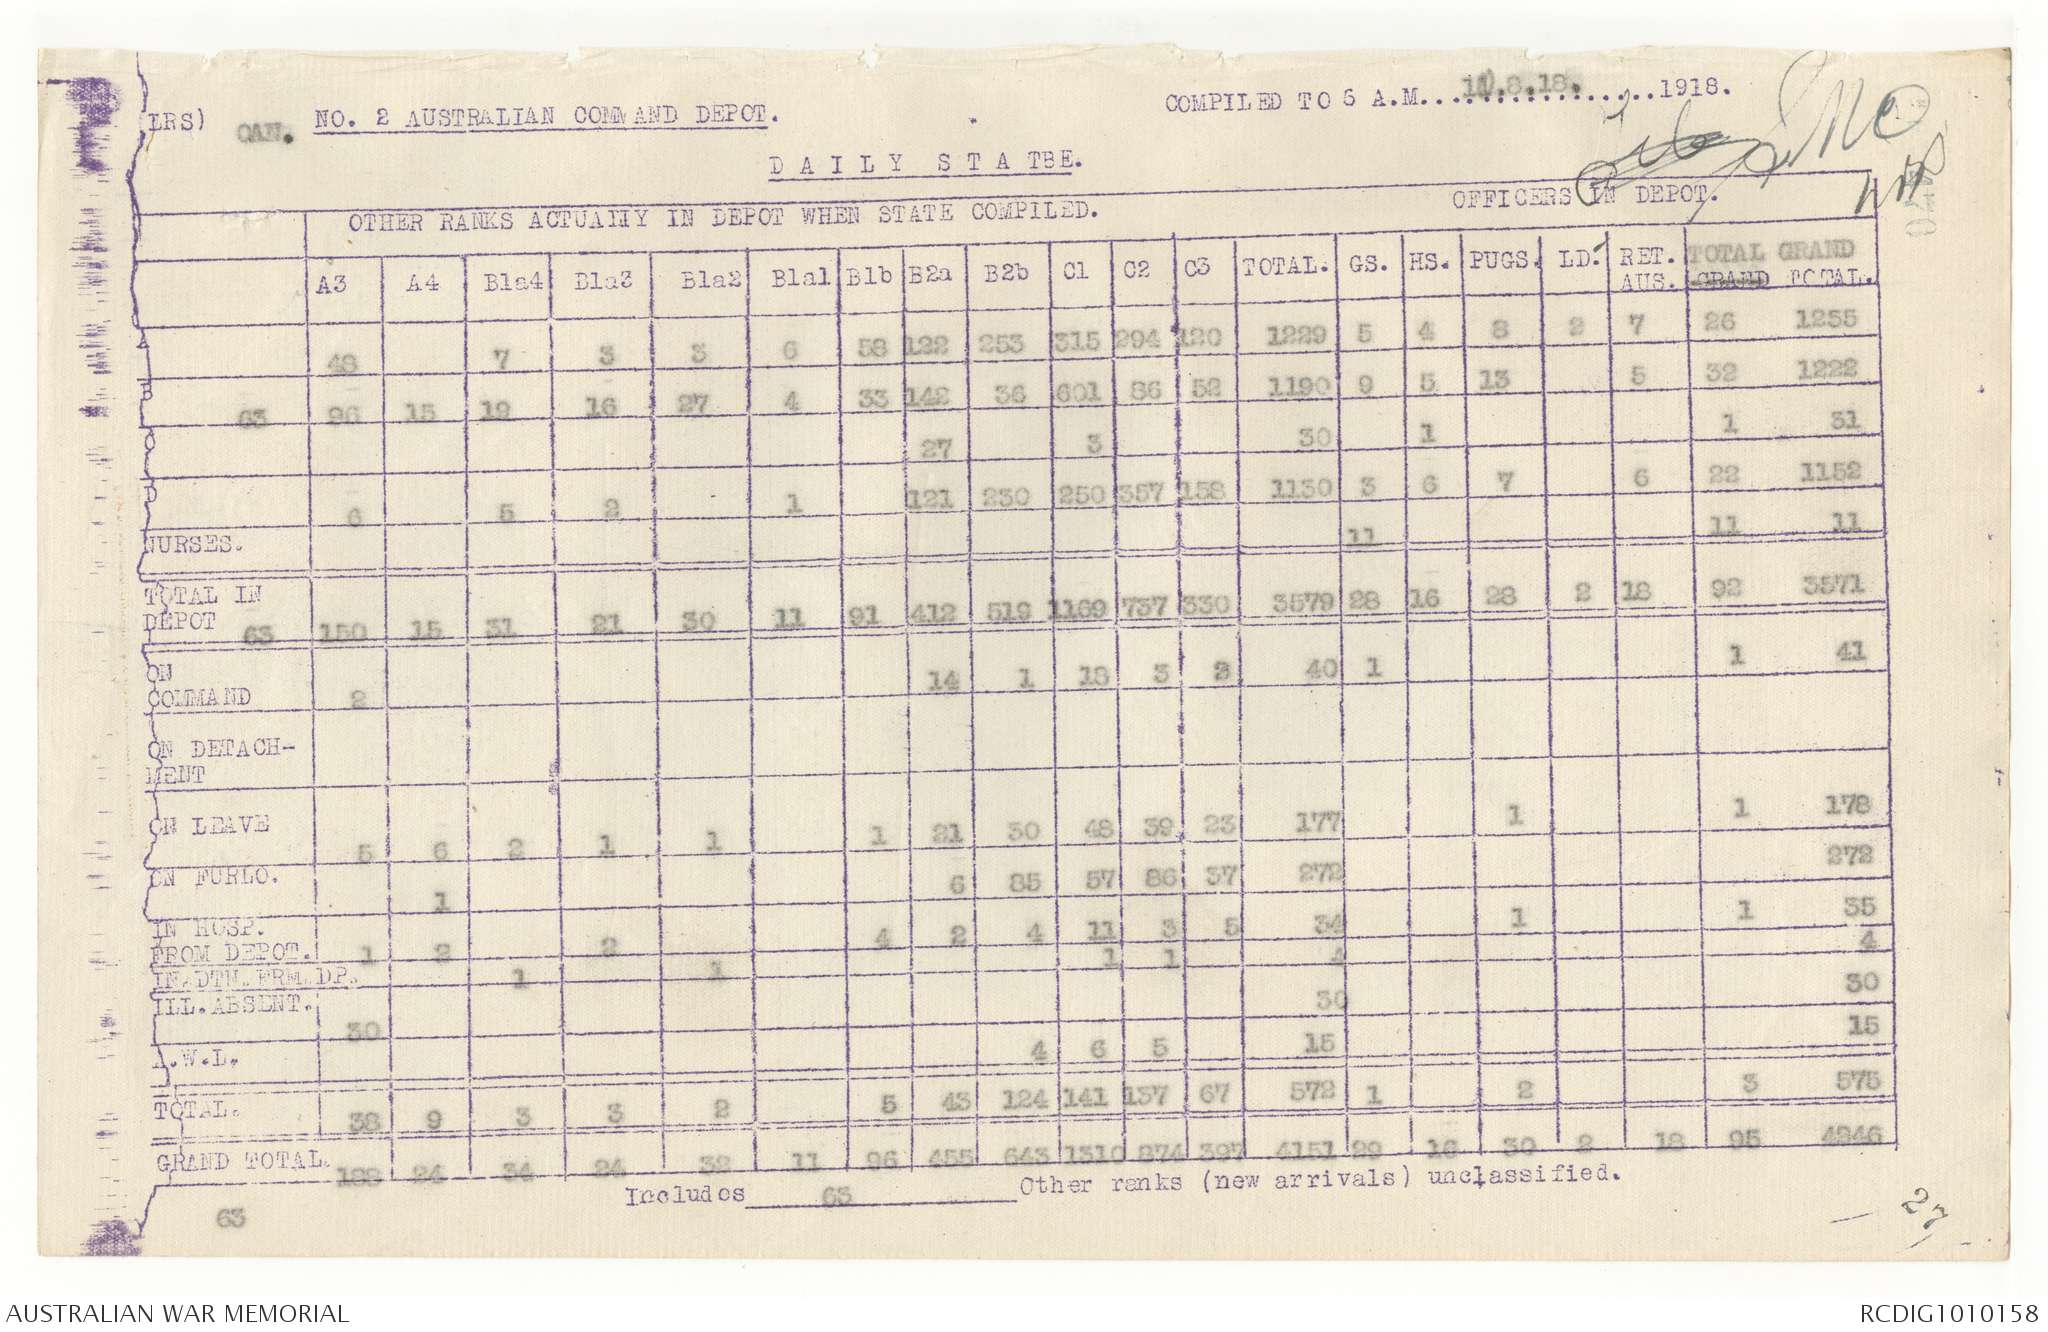 LRS) OAN. NO. 2 AUSTRALIAN COMMAND DEPOT. COMPILED TO 6 A.M. 10.8.18. 1918.
D A I L Y S T A TBE.
OTHER RANKS ACTUALLY IN DEPOT WHEN STATE COMPILED. OFFICERS IN DEPOT.
A3 A4 B1a4 B1a3 B1a2 B1a1 B1b B2a B2b C1 C2 C3 TOTAL. GS. HS. PUGS. LD. RET. AUS. TOTAL GRAND
GRAND TOTAL.
48 7 3 3 6 58 122 253 315 294 120 1229 5 4 8 2 7 26 1255
B 63 96 15 19 16 27 4 33 142 36 601 86 52 1190 9 5 13 5 32 1222
27 3 30 1 1 31
6 5 2 1 121 230 250 357 158 1130 3 6 7 6 22 1152
NURSES. 11 11 11
TOTAL IN
DEPOT 63 150 15 31 21 30 11 91 412 519 1169 737 330 3579 28 16 28 2 18 92 3571
ON
COMMAND 2 14 1 18 3 2 40 1 1 41
ON DETACH-
MENT
ON LEAVE 5 6 2 1 1 1 21 30 48 39 23 177 1 1 178
ON FURLO. 1 6 85 57 86 37 272 272
IN HOSP.
FROM DEPOT. 1 2 2 4 2 4 11 3 5 34 1 1 35
IN.DTN.FRM.DP. 1 1 1 1 4 4
ILL.ABSENT. 30 30 30
A.W.L. 4 6 5 15 15
TOTAL. 38 9 3 3 2 5 43 124 141 137 67 572 1 2 3 575
GRAND TOTAL. 188 24 34 24 32 11 96 455 643 1310 874 397 4151 29 16 30 2 18 95 4246
63 Includes 63 Other ranks (new arrivals) unclassified.
27
AUSTRALIAN WAR MEMORIAL RCDIG1010158